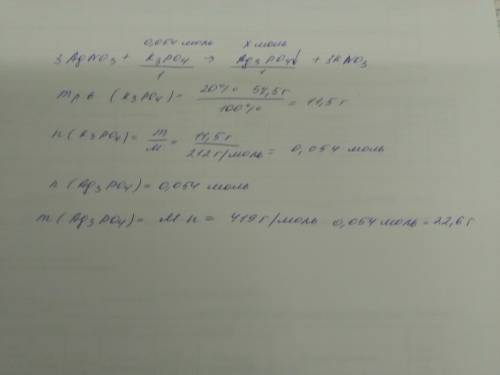 0,054 моль   X моль
3 AgNO3 + K3PO4 → Ag3PO4↓ + 3KNO3
1   1
m р.в (K3PO4) = 20% · 57,5г / 100% = 11,5 г
n (K3PO4) = m / M = 11,5г / 212 г/моль = 0,054 моль
n (Ag3PO4) = 0,054 моль
m (Ag3PO4) = M · n = 419 г/моль · 0,054 моль = 22,6 г